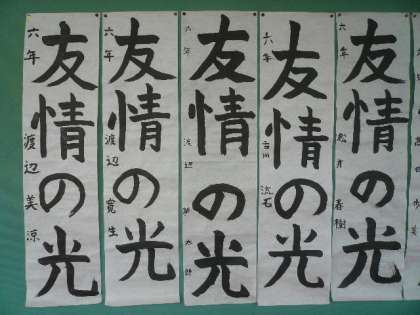 友情の光
六年 渡辺 美涼
友情の光
六年 渡辺 寛生
友情の光
六年 渡辺
友情の光
六年 吉川 流石
友情の光
六年 春樹